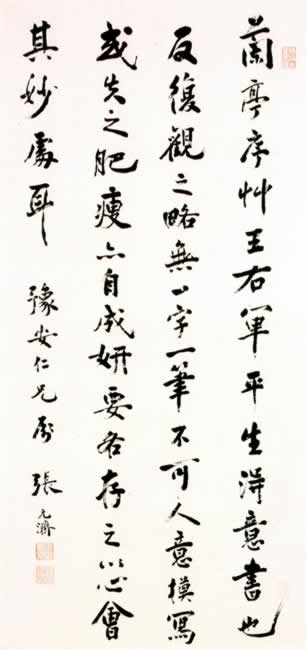 蘭亭序艸王右軍平生得意書也
反復觀之略無一字一筆不可人意摸寫
或失之肥瘦亦自成妍要各存之以心會
其妙處耳 豫安仁兄屬 張元濟